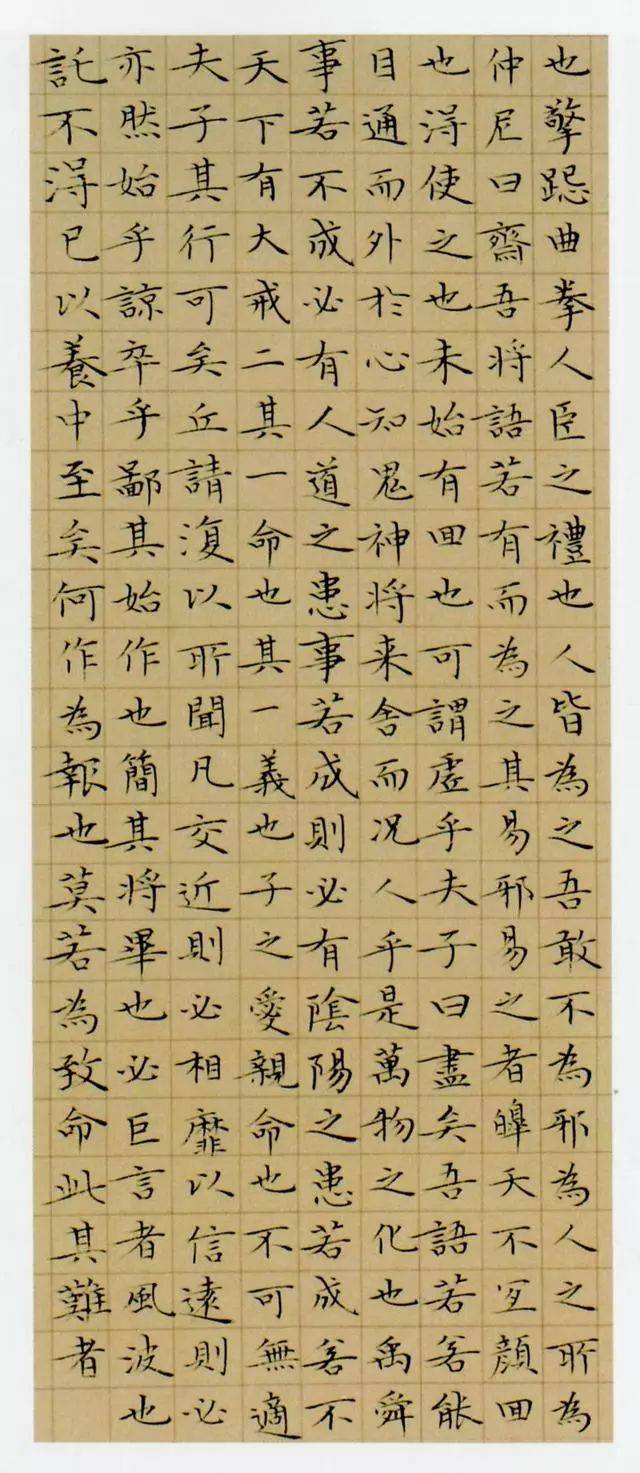 也擎跽曲拳人臣之禮也人皆為之吾敢不為邪為人之所為
仲尼曰齋吾將語若有而為之其易邪易之者皞天不宜顏回
也得使之也未始有回也可謂虛乎夫子曰盡矣吾語若若能
目通而外於心知鬼神將来舍而况人乎是萬物之化也禹舜
事若不成必有人道之患事若成則必有陰陽之患若成若不
天下有大戒二其一命也其一義也子之愛親命也不可無適
夫子其行可矣丘請復以所聞凡交近則必相靡以信遠則必
亦然始乎諒卒乎鄙其始作也簡其將畢也必巨言者風波也
託不得已以養中至矣何作為報也莫若為致命此其難者